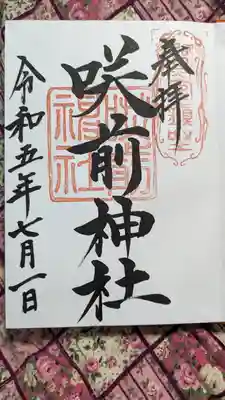 奉拝
咲前神社
令和五年七月一日